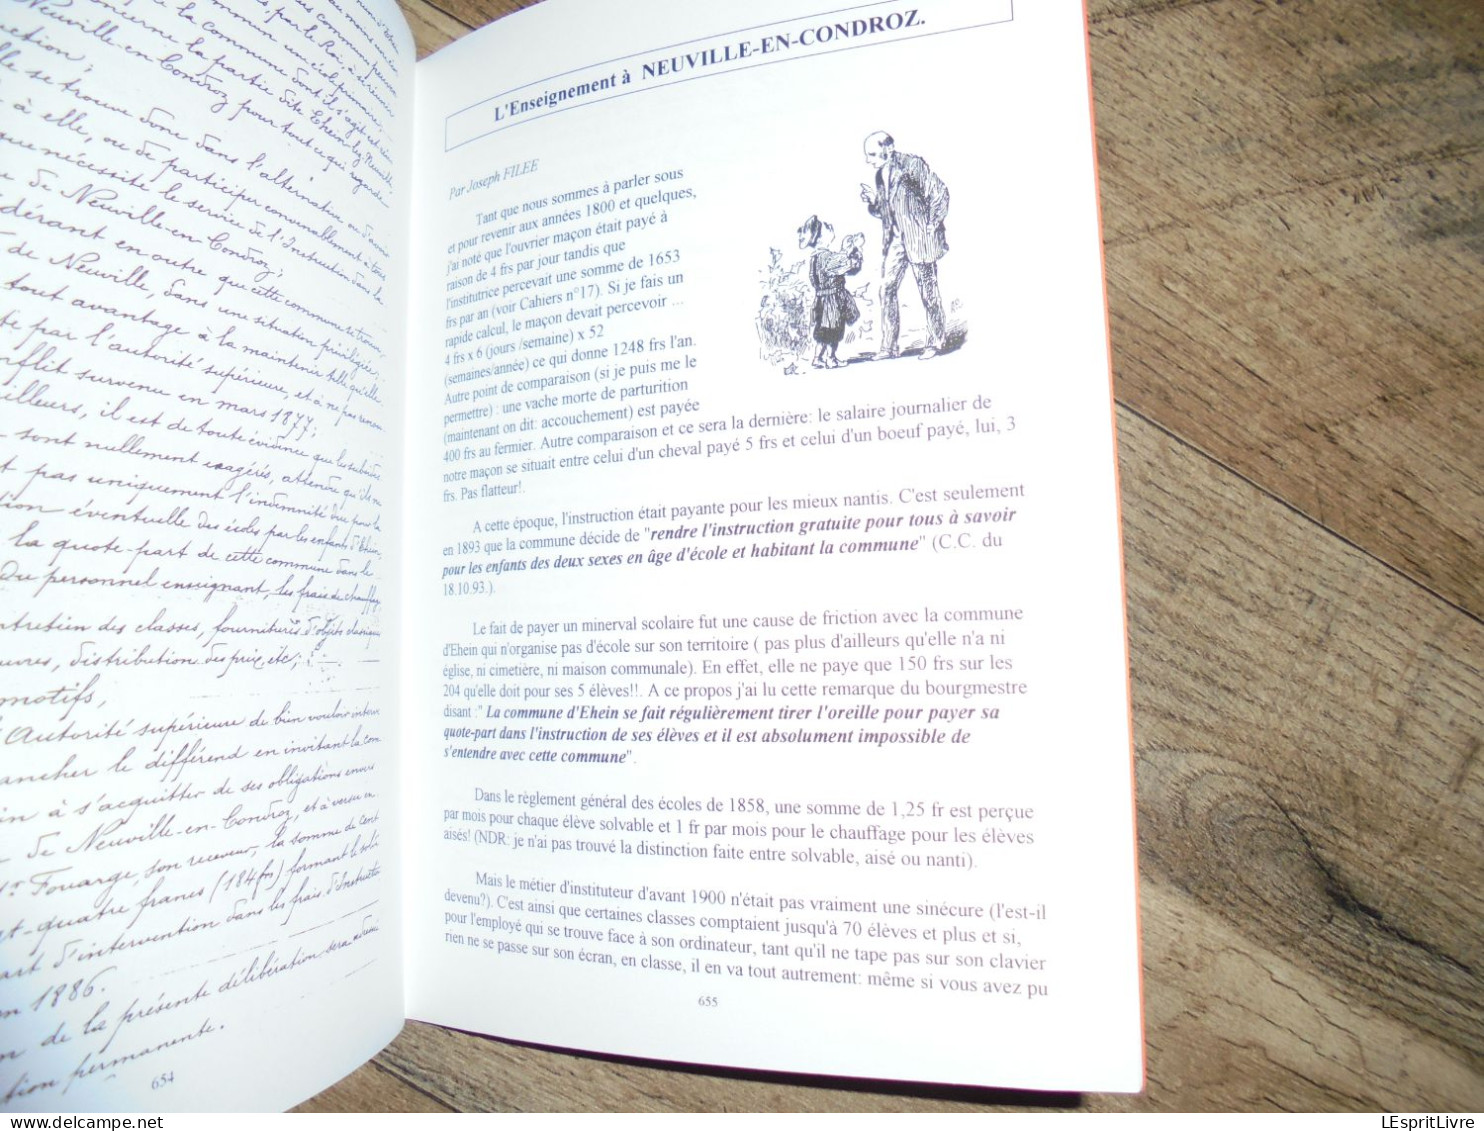 Neuville-en-Condroz pour tout ce qui regarde
lle se trouve donc dans l'alternative ou d'avoir
à elle, ou de participer convenablement à tous
que nécessite le service de l'Instruction dans la
de Neuville-en-Condroz;
dérant en outre que cette commune se trouve,
de Neuville, dans une situation privilégiée;
tout avantage à la maintenir telle qu'elle
te par l'autorité supérieure, et à ne pas
nflit survenu en mars 1877;
illeurs, il est de toute évidence que les subsides
sont nullement exagérés, attendu qu'ils ne
t pas uniquement l'indemnité due pour la
tion éventuelle des écoles par les enfants d'Ehein,
la quote-part de cette commune dans le
Du personnel enseignant, les frais de chauffage
ntretien des classes, fournitures d'objets classiques
uvres, distribution des prix, etc;
motifs,
l'Autorité supérieure de bien vouloir interv
ancher le différend en invitant la com
in à s'acquitter de ses obligations envers
de Neuville-en-Condroz, et à verser en
Sr Fouarge, son receveur, la somme de cent
gt-quatre francs (184 frs) formant le solde
art d'intervention dans les frais d'Instruction
en 1886.
on de la présente délibération sera adressée
ation permanente.
654
L'Enseignement à NEUVILLE-EN-CONDROZ.
Par Joseph FILEE
Tant que nous sommes à parler sous
et pour revenir aux années 1800 et quelques,
j'ai noté que l'ouvrier maçon était payé à
raison de 4 frs par jour tandis que
l'institutrice percevait une somme de 1653
frs par an (voir Cahiers n°17). Si je fais un
rapide calcul, le maçon devait percevoir ...
4 frs x 6 (jours /semaine) x 52
(semaines/année) ce qui donne 1248 frs l'an.
Autre point de comparaison (si je puis me le
permettre) : une vache morte de parturition
(maintenant on dit: accouchement) est payée
400 frs au fermier. Autre comparaison et ce sera la dernière: le salaire journalier de
notre maçon se situait entre celui d'un cheval payé 5 frs et celui d'un boeuf payé, lui, 3
frs. Pas flatteur!.
A cette époque, l'instruction était payante pour les mieux nantis. C'est seulement
en 1893 que la commune décide de "rendre l'instruction gratuite pour tous à savoir
pour les enfants des deux sexes en âge d'école et habitant la commune" (C.C. du
18.10.93.).
Le fait de payer un minerval scolaire fut une cause de friction avec la commune
d'Ehein qui n'organise pas d'école sur son territoire ( pas plus d'ailleurs qu'elle n'a ni
église, ni cimetière, ni maison communale). En effet, elle ne paye que 150 frs sur les
204 qu'elle doit pour ses 5 élèves!!. A ce propos j'ai lu cette remarque du bourgmestre
disant :" La commune d'Ehein se fait régulièrement tirer l'oreille pour payer sa
quote-part dans l'instruction de ses élèves et il est absolument impossible de
s'entendre avec cette commune".
Dans le règlement général des écoles de 1858, une somme de 1,25 fr est perçue
par mois pour chaque élève solvable et 1 fr par mois pour le chauffage pour les élèves
aisés! (NDR: je n'ai pas trouvé la distinction faite entre solvable, aisé ou nanti).
Mais le métier d'instituteur d'avant 1900 n'était pas vraiment une sinécure (l'est-il
devenu?). C'est ainsi que certaines classes comptaient jusqu'à 70 élèves et plus et si,
pour l'employé qui se trouve face à son ordinateur, tant qu'il ne tape pas sur son clavier
rien ne se passe sur son écran, en classe, il en va tout autrement: même si vous avez pu
655
LEspritLivre